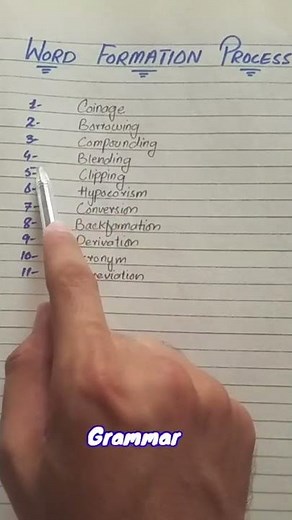 WORD FORMATION PROCESS
1- Coinage
2- Borrowing
3- Compounding
4- Blending
5- Clipping
6- Hypocorism
7- Conversion
8- Backformation
9- Derivation
10-
11-
Grammar